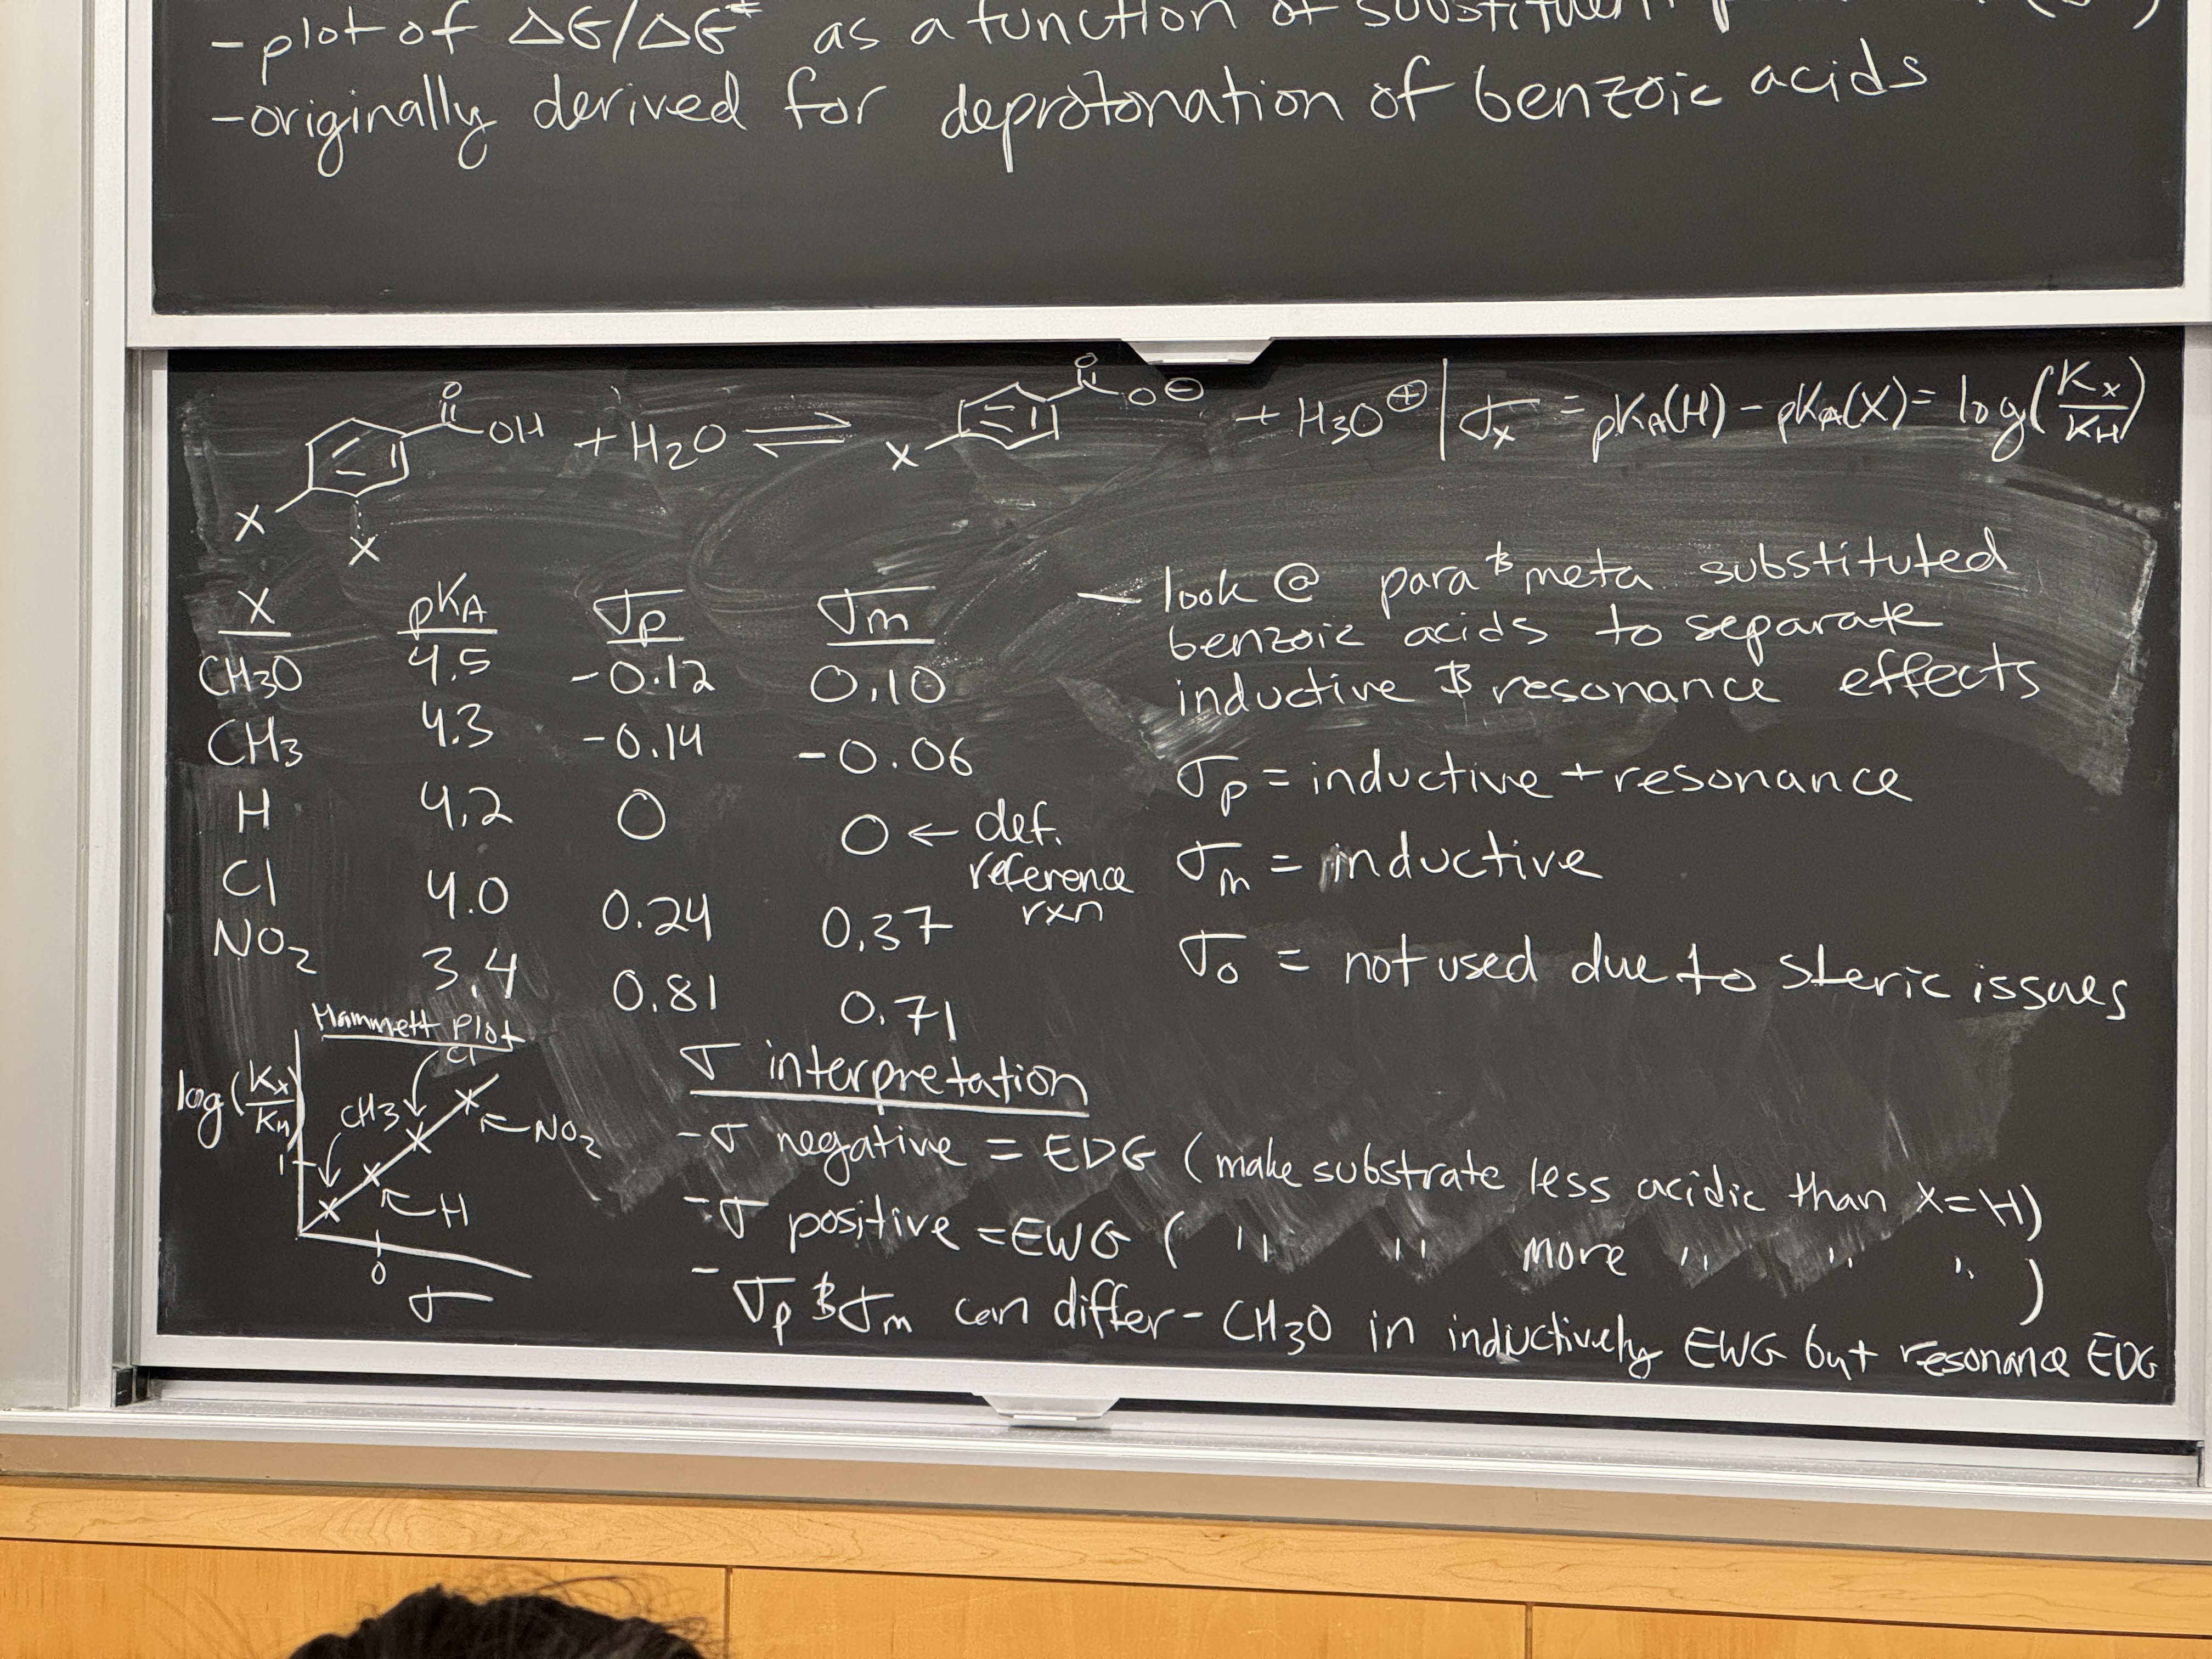 - plot of ΔG/ΔG‡ as a function of substituent
- originally derived for deprotonation of benzoic acids
O
OH + H2O ⇌ O O⊖ + H3O⊕ | σx = pKA(H) - pKA(X) = log(Kx/KH)
X X
X
X pKA σp σm
CH3O 4.5 -0.12 0.10
CH3 4.3 -0.14 -0.06
H 4.2 0 0 ← def. reference rxn
Cl 4.0 0.24 0.37
NO2 3.4 0.81 0.71
— look @ para & meta substituted
benzoic acids to separate
inductive & resonance effects
σp = inductive + resonance
σm = inductive
σo = not used due to steric issues
Hammett Plot
log(Kx/KH)
Cl
CH3
NO2
1
H
0
σ
σ interpretation
- σ negative = EDG (make substrate less acidic than X=H)
- σ positive = EWG ( " " more " " " )
- σp & σm can differ - CH3O in inductively EWG but resonance EDG